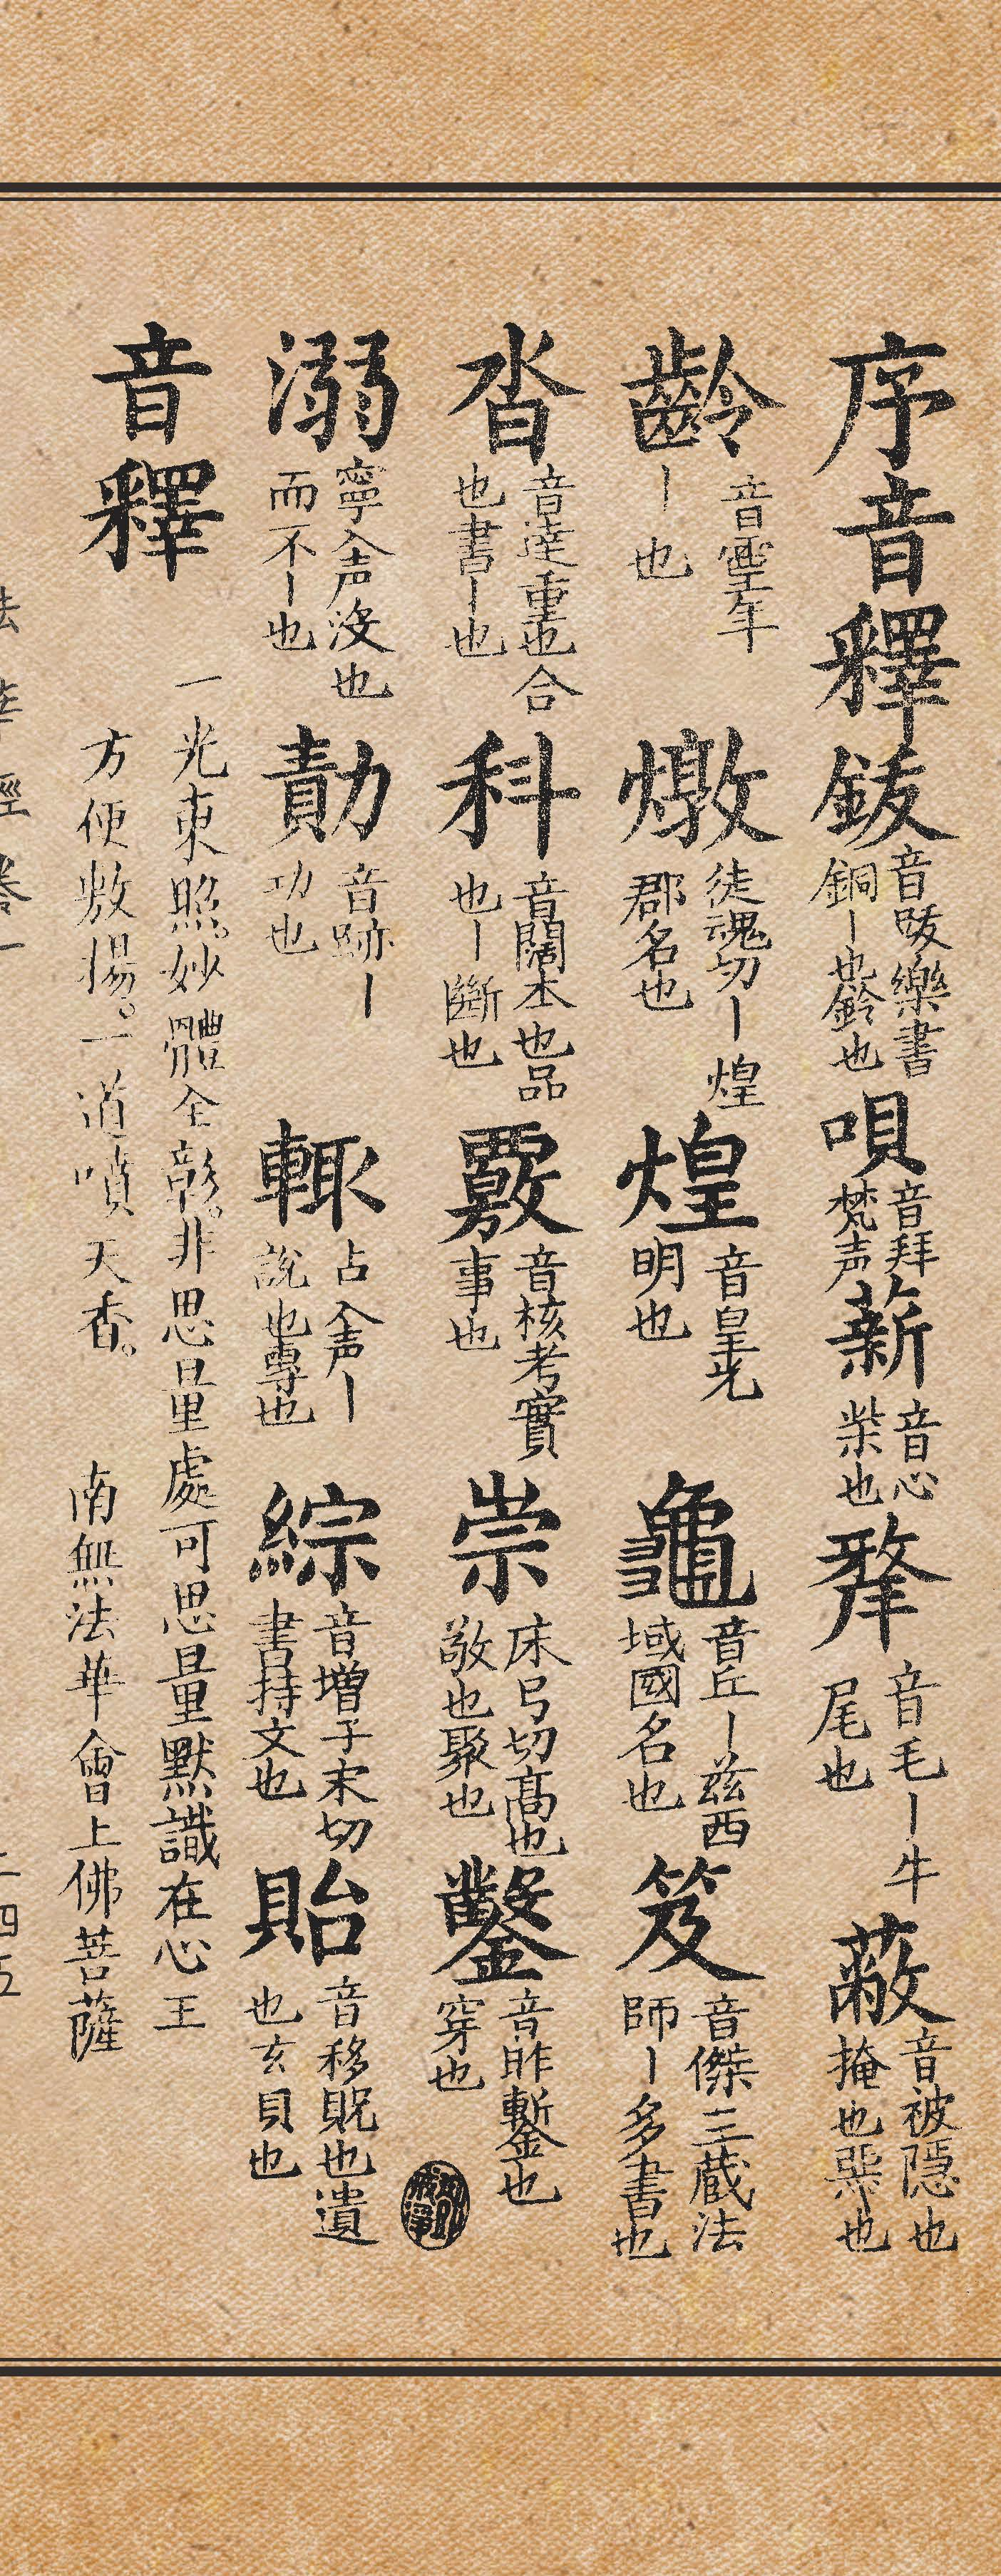 序音釋 鈸 音跋樂書銅丨也鈴也 唄 音拜梵声 薪 音心柴也 犛 音毛丨牛尾也 蔽 音被隱也掩也
齡 音靈年丨也 燉 徒魂切丨煌郡名也 煌 音皇光明也 龜 音丘丨兹西域國名也 笈 音傑三蔵法師丨多書也
沓 音達重也合也書丨也 科 音闊本也品也丨斷也 覈 音核考實事也 崇 床弓切高也敬也聚也 鑿 音昨鏨也穿也
溺 寧入声沒也而不丨也 勣 音跡丨功也 輙 占入声丨說也專也 綜 音增子宋切書持文也 貽 音移貺也遺也玄貝也
音釋
一光東照。妙體全彰。非思量處可思量默識在心王
方便敷揚。一道噴天香。 南無法華會上佛菩薩
法華經卷一 二四五